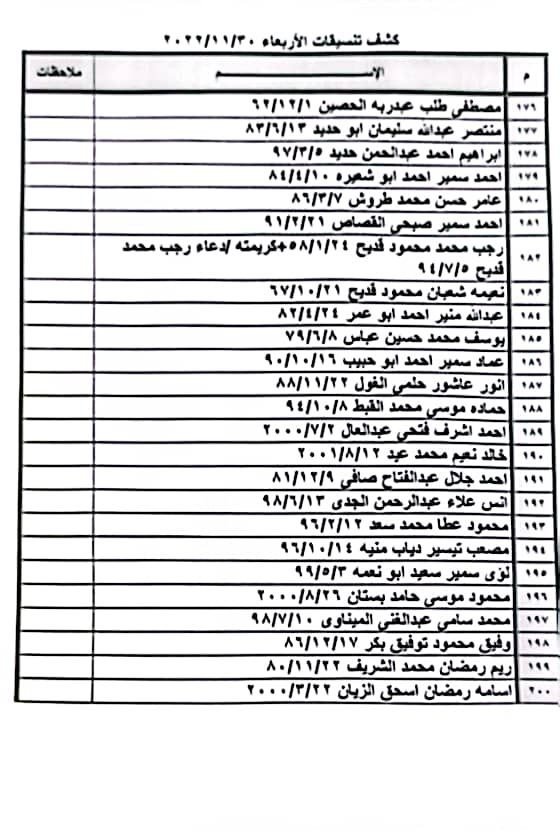 كشف تنسيقات الأربعاء ٢٠٢٢/١١/٣٠
م الاســـــــم ملاحظات
١٧٦ مصطفى طلب عبدربه الحصين ٦٢/١٢/١
١٧٧ منتصر عبدالله سليمان ابو حديد ٨٣/٦/١٣
١٧٨ ابراهيم احمد عبدالحمن حديد ٩٧/٣/٥
١٧٩ احمد سمير احمد ابو شعيره ٨٤/٤/١٠
١٨٠ عامر حسن محمد طروش ٨٦/٣/٧
١٨١ احمد سمير صبحي القصاص ٩١/٢/٢١
١٨٢ رجب محمد محمود قديح ٥٨/١/٢٤+كريمته /دعاء رجب محمد
قديح ٩٤/٧/٥
١٨٣ نعيمه شعبان محمود قديح ٦٧/١٠/٢١
١٨٤ عبدالله منير احمد ابو عمر ٨٢/٤/٢٤
١٨٥ يوسف محمد حسين عباس ٧٩/٦/٨
١٨٦ عماد سمير احمد ابو حبيب ٩٠/١٠/١٦
١٨٧ انور عاشور حلمي الغول ٨٨/١١/٢٢
١٨٨ حماده موسي محمد القبط ٩٤/١٠/٨
١٨٩ احمد اشرف فتحي عبدالعال ٢٠٠٠/٧/٢
١٩٠ خالد نعيم محمد عيد ٢٠٠١/٨/١٢
١٩١ احمد جلال عبدالفتاح صافي ٨١/١٢/٩
١٩٢ انس علاء عبدالرحمن الجدى ٩٨/٦/١٣
١٩٣ محمود عطا محمد سعد ٩٦/٢/١٢
١٩٤ مصعب تيسير دياب منيه ٩٦/١٠/١٤
١٩٥ لؤى سمير سعيد ابو نعمه ٩٩/٥/٣
١٩٦ محمود موسي حامد بستان ٢٠٠٠/٨/٢٦
١٩٧ محمد سامي عبدالغني الميناوى ٩٨/٧/١٠
١٩٨ وفيق محمود توفيق بكر ٨٦/١٢/١٧
١٩٩ ريم رمضان محمد الشريف ٨٠/١١/٢٢
٢٠٠ اسامه رمضان اسحق الزيان ٢٠٠٠/٣/٢٢